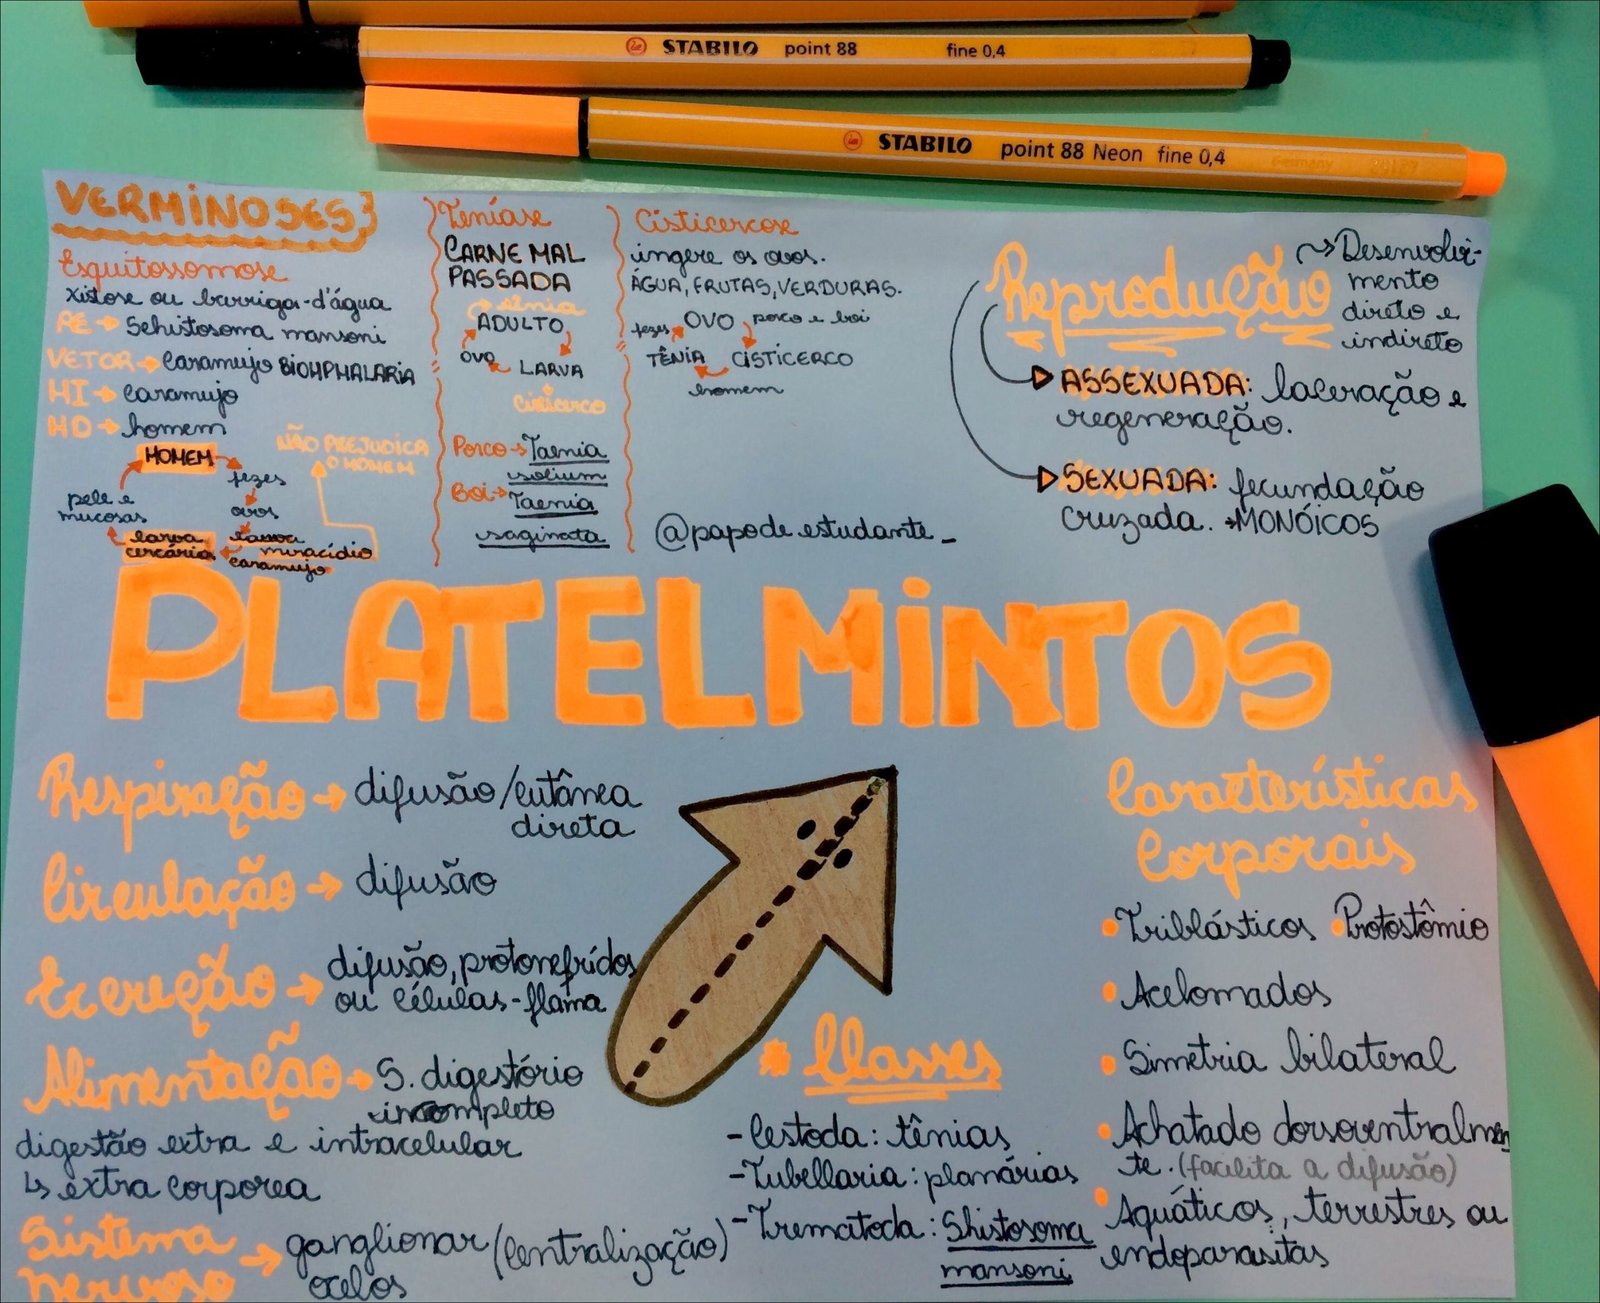 STABILO point 88 fine 0,4
STABILO point 88 Neon fine 0,4
VERMINOSES
Esquitossomose
Xistose ou barriga-d'água
PÉ → Sehistosoma mansoni
VETOR → Caramujo BIOMPHALARIA
HI → Caramujo
HD → homem
HOMEM
fezes
ovos
larva
miracídio
caramujo
larva
cercária
pele e
mucosas
NÃO PREJUDICA
O HOMEM
Teníase
CARNE MAL
PASSADA
tênia
ADULTO
OVO
LARVA
Cisticerco
Porco → Taenia
solium
Boi → Taenia
saginata
Cisticercose
ingere os ovos.
ÁGUA, FRUTAS, VERDURAS.
fezes
OVO
porco e boi
TÊNIA
CISTICERCO
homem
@papode.estudante_
Reprodução
Desenvolvi-
mento
direto e
indireto
ASSEXUADA: laceração e
regeneração.
SEXUADA: fecundação
cruzada. → MONÓICOS
PLATELMINTOS
Respiração → difusão/cutânea
direta
Circulação → difusão
Excreção → difusão, protonefrídos
ou células-flama
Alimentação → S. digestório
incompleto
digestão extra e intracelular
↳ extra corporea
Sistema
nervoso → ganglionar (Centralização)
ocelos
* Classes
- Cestoda: tênias
- Tubellaria: planárias
- Trematoda: Shistosoma
mansoni
Características
Corporais
• Triblásticos • Protostômio
• Acelomados
• Simetria bilateral
• Achatado dorsoventralmen
te. (facilita a difusão)
• Aquáticos, terrestres ou
endoparasitas